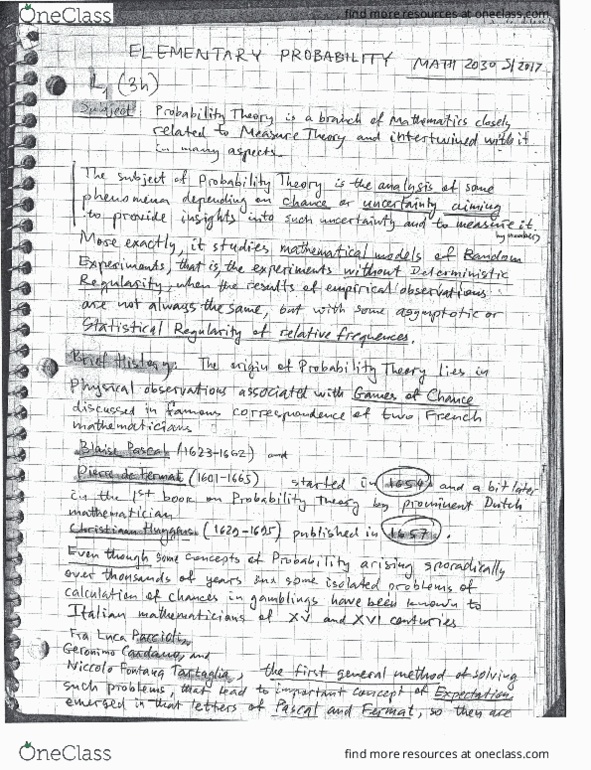 OneClass
find more resources at oneclass.com
ELEMENTARY PROBABILITY MATH 2030 S/2017
L1 (3h)
Subject: Probability Theory is a branch of Mathematics closely
related to Measure Theory and intertwined with it
in many aspects.
The subject of Probability Theory is the analysis of some
phenomena depending on chance or uncertainty aiming
to provide insights into such uncertainty and to measure it
by numbers
More exactly, it studies mathematical models of Random
Experiments, that is, the experiments without Deterministic
Regularity, when the results of empirical observations
are not always the same, but with some asymptotic or
Statistical Regularity of relative frequences.
Brief History: The origin of Probability Theory lies in
Physical observations associated with Games of Chance
discussed in famous correspondence of two French
mathematicians
Blaise Pascal (1623-1662) and
Pierre de Fermat (1601-1665) started in 1654 and a bit later
in the 1st book on Probability Theory by prominent Dutch
mathematician
Christiaan Huygens (1629-1695) published in 1657.
Even though some concepts of Probability arising sporadically
over thousands of years and some isolated problems of
calculation of chances in gamblings have been known to
Italian mathematicians of XV and XVI centuries
Fra Luca Paccioli,
Geronimo Cardano, and
Niccolo Fontana Tartaglia, the first general method of solving
such problems, that lead to important concept of Expectation
emerged in that letters of Pascal and Fermat, so they are
OneClass
find more resources at oneclass.com